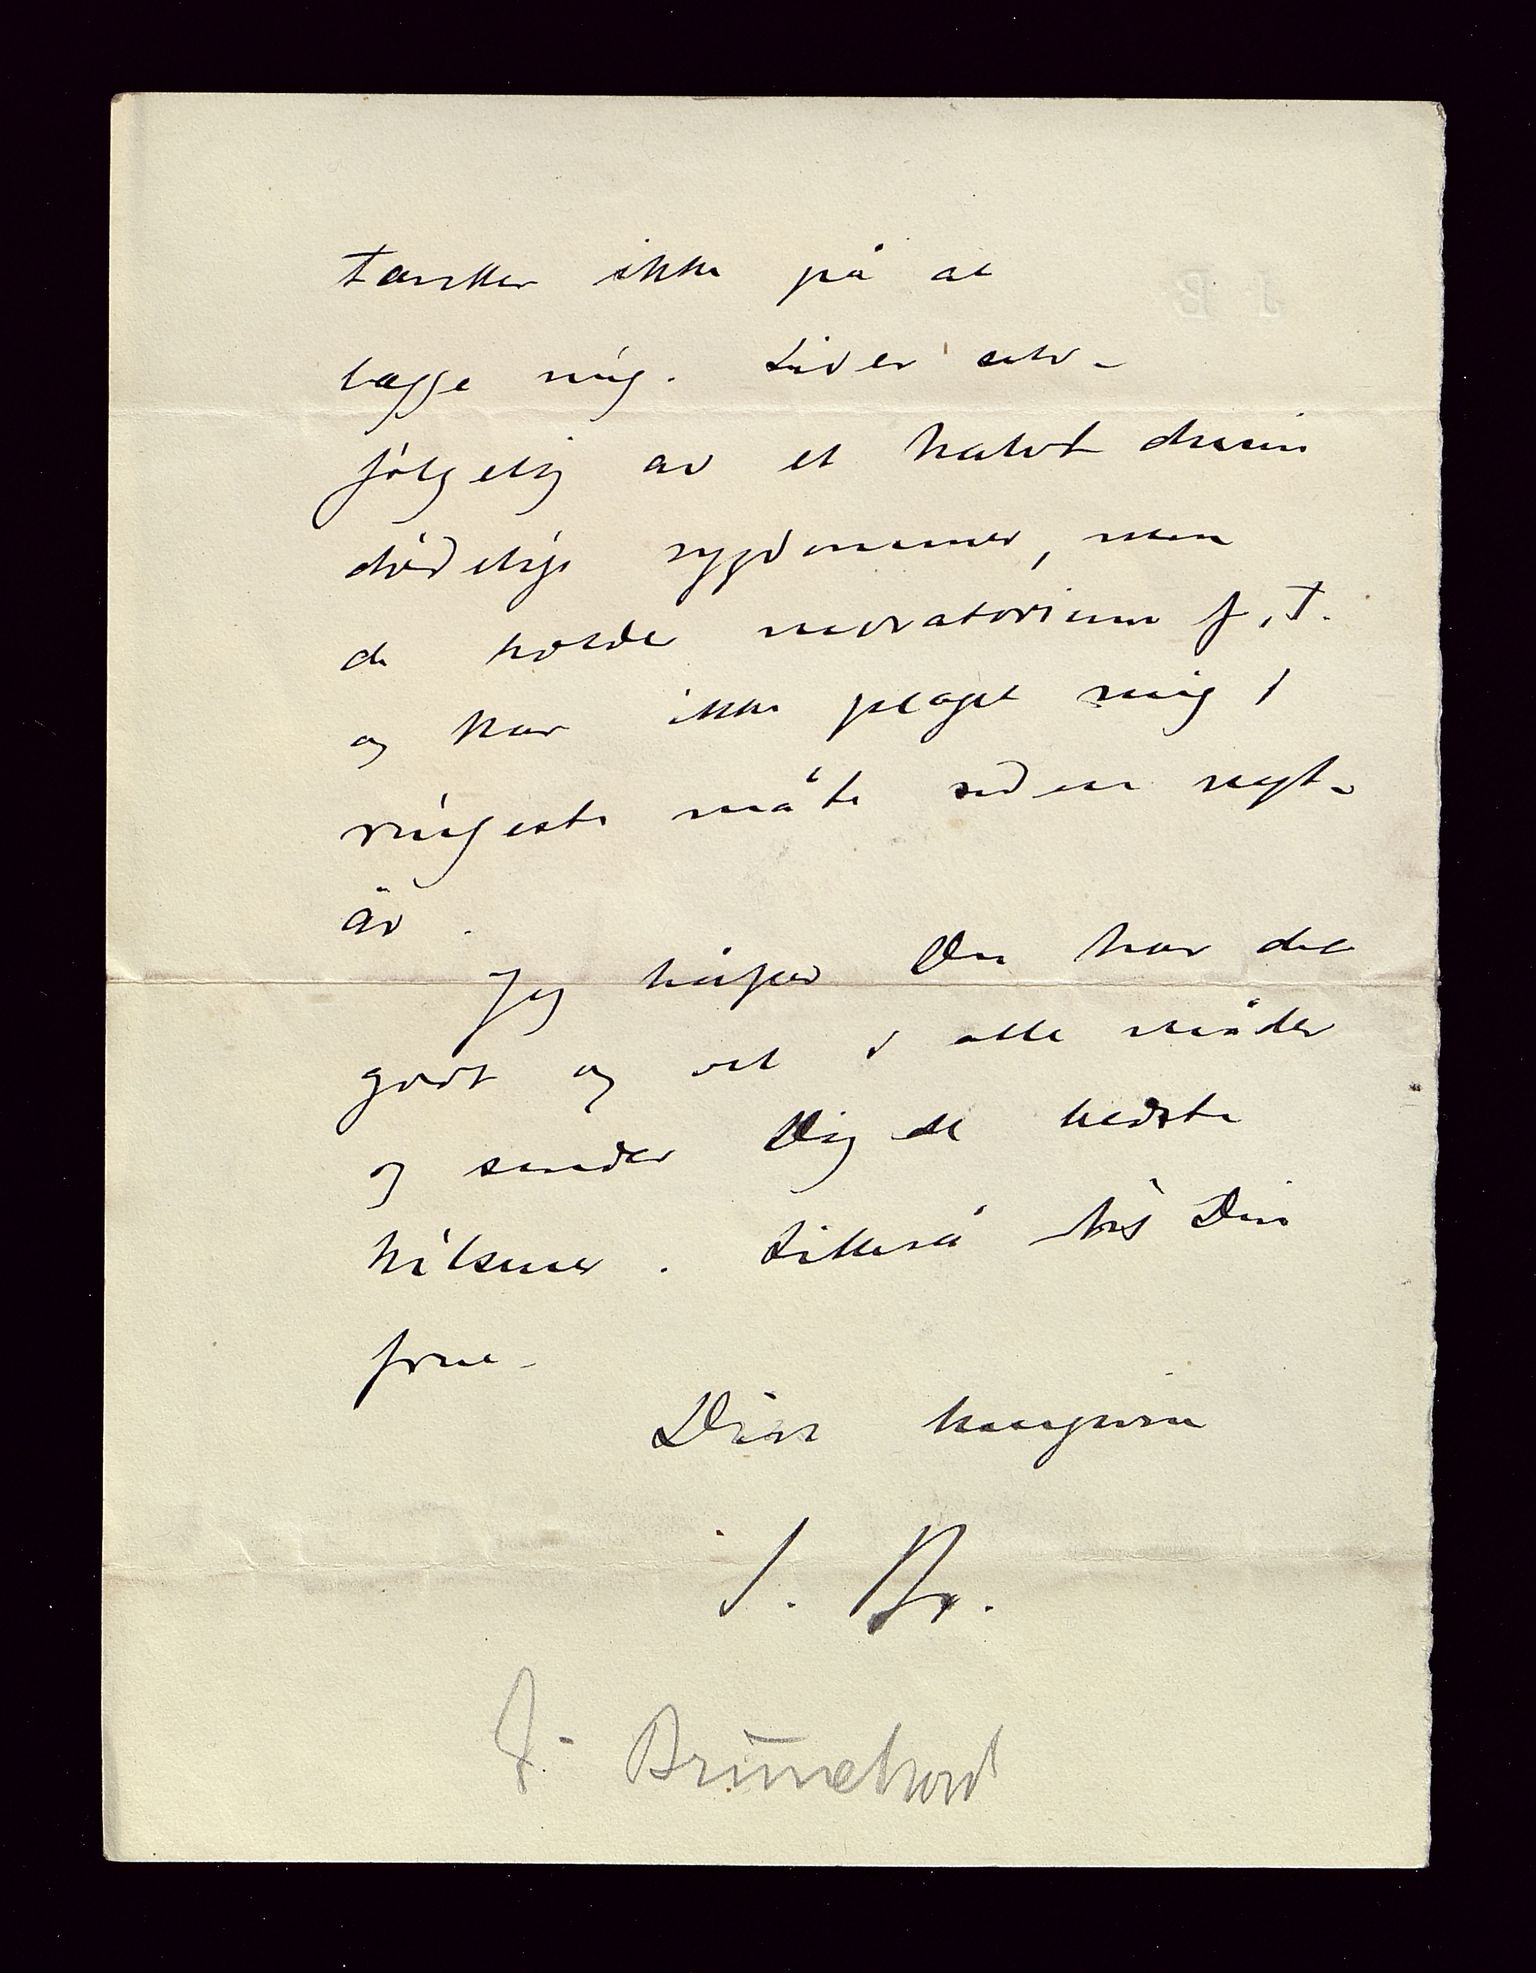 tænker ikke på at
lægge mig. Lider selv-
følgelig av et halvt dusin
dødelige sygdommer, men
de holder moratorium f. t.
og har ikke plaget mig i
ringeste måte siden nyt-
år.
Jeg håper Du har det
godt og vel i alle måder
og sender Dig de bedste
hilsener. Likeså hils Din
frue.
Din hengivne
J. Br.
J. Brunchorst
J B